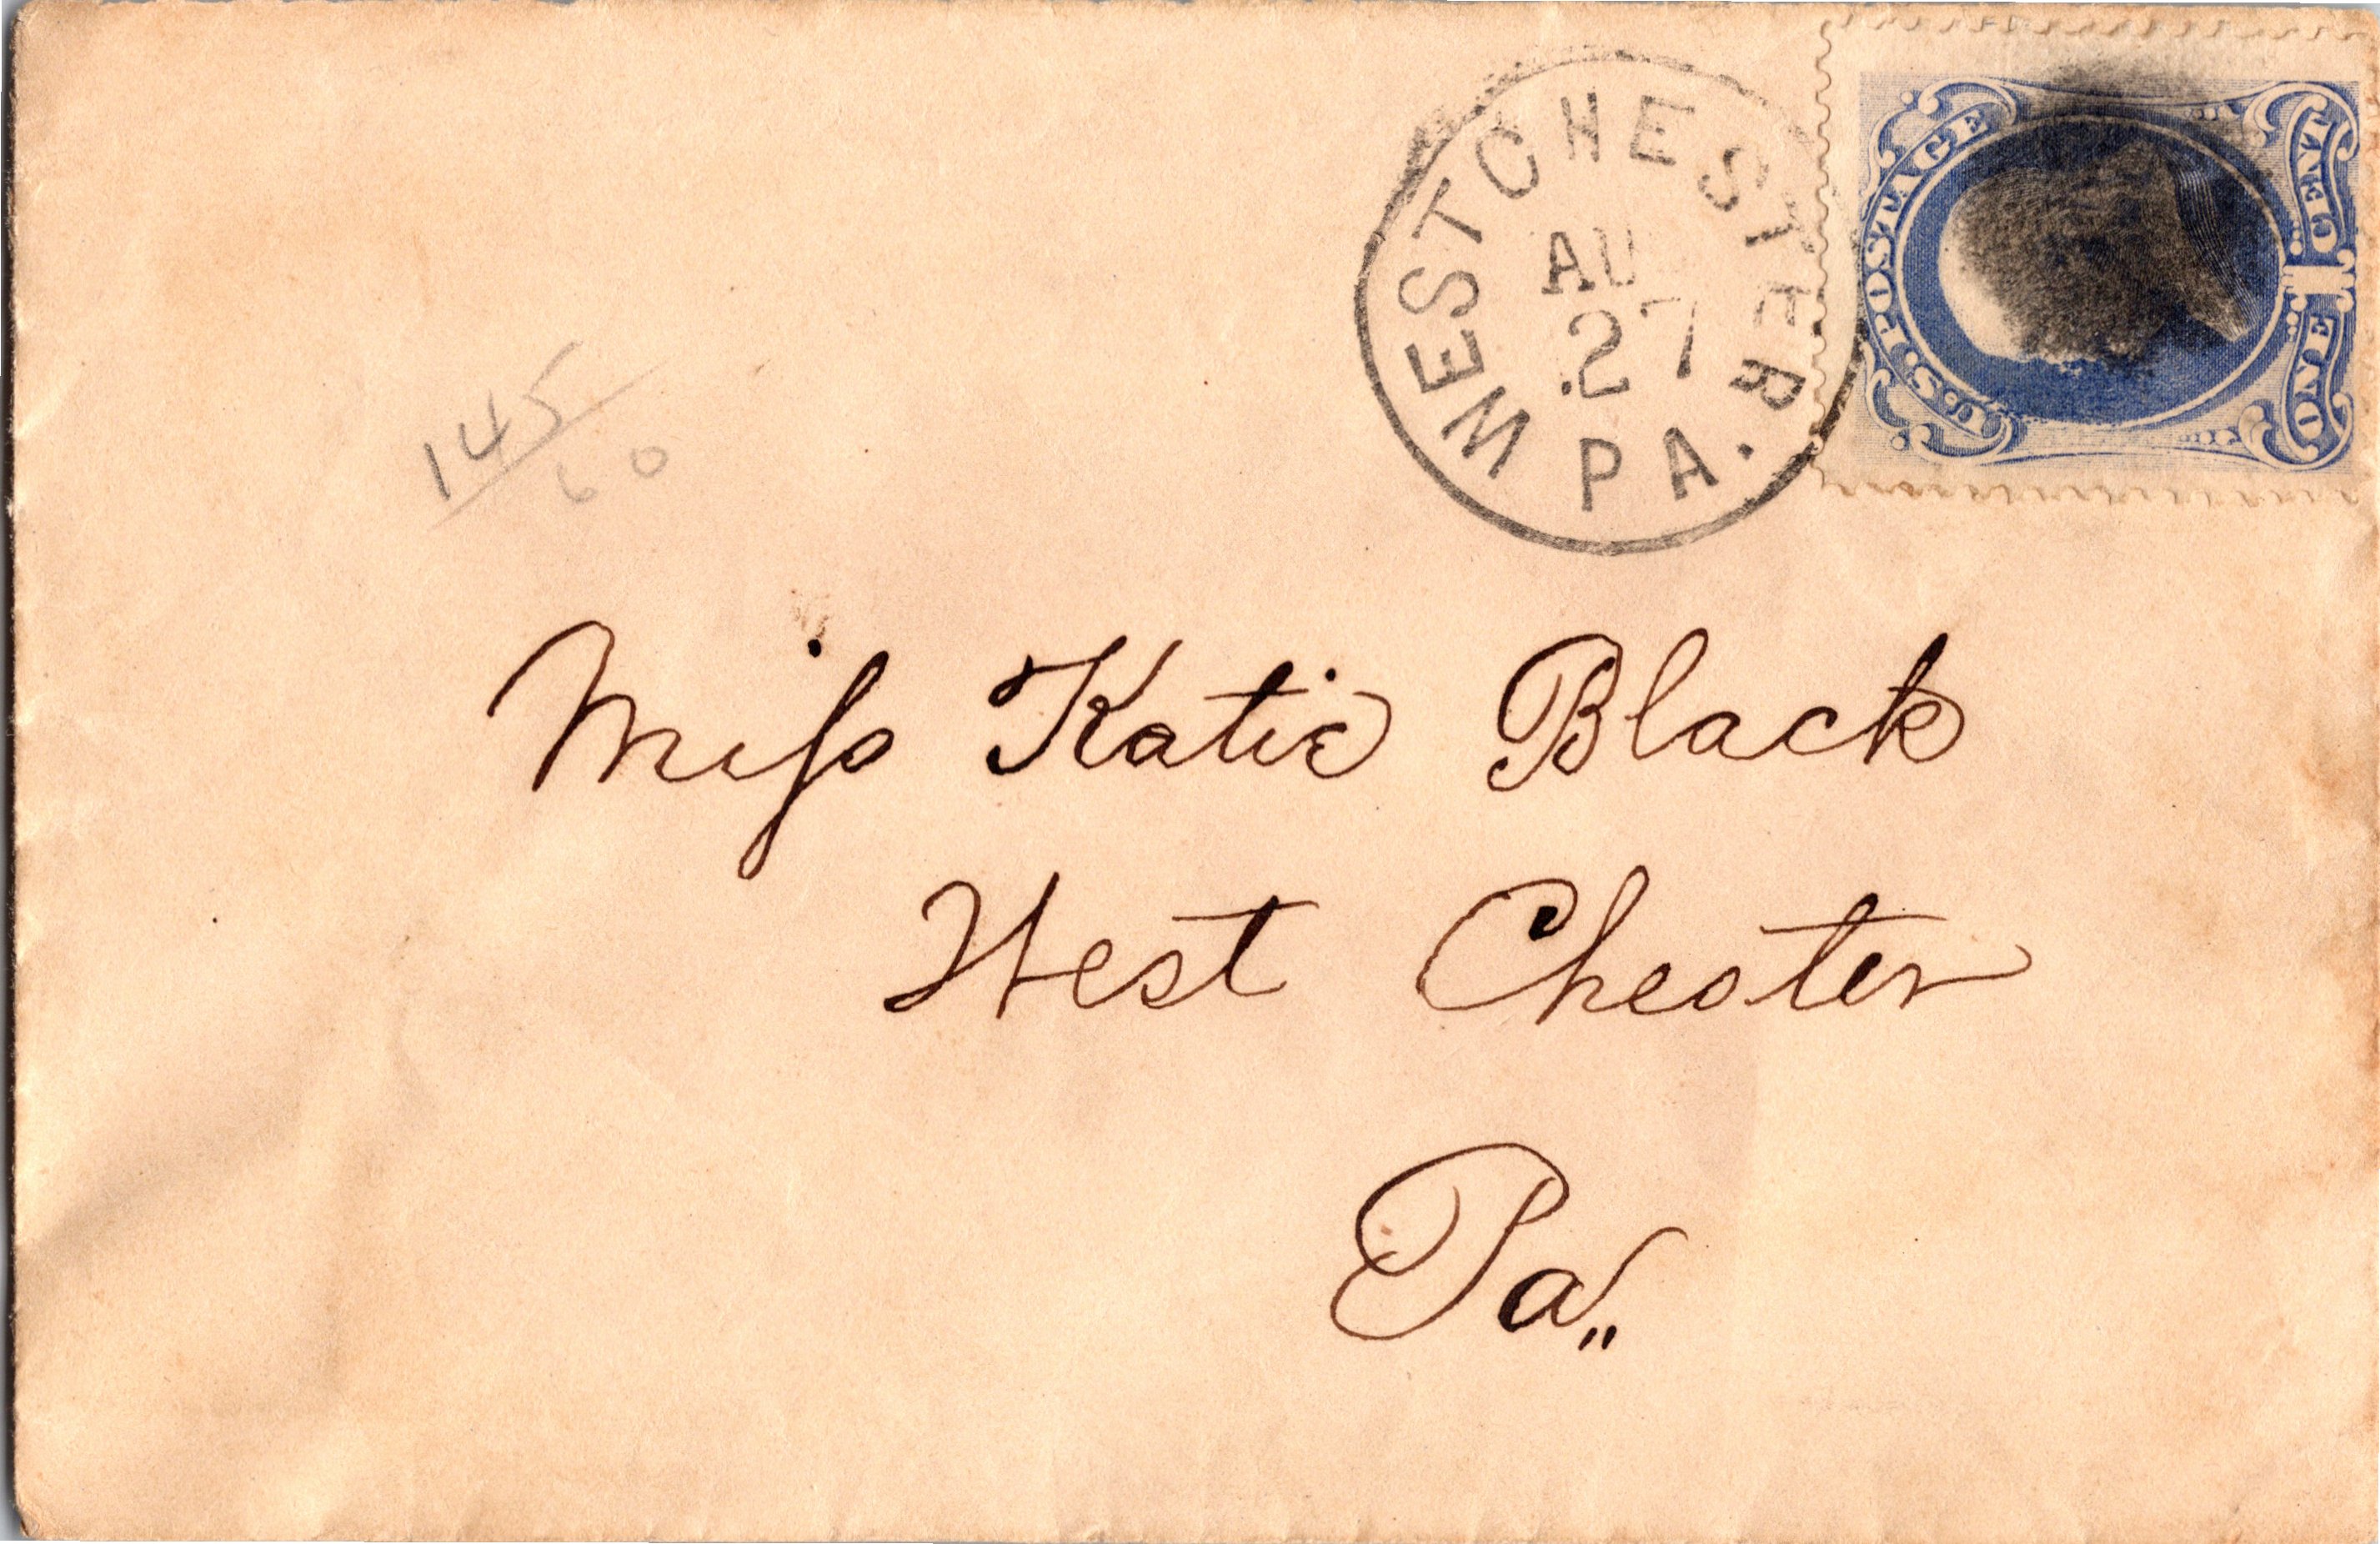 WESTCHESTER
PA.
AU
27
U.S. POSTAGE
ONE 1 CENT
145
60
Miss Katie Black
West Chester
Pa.